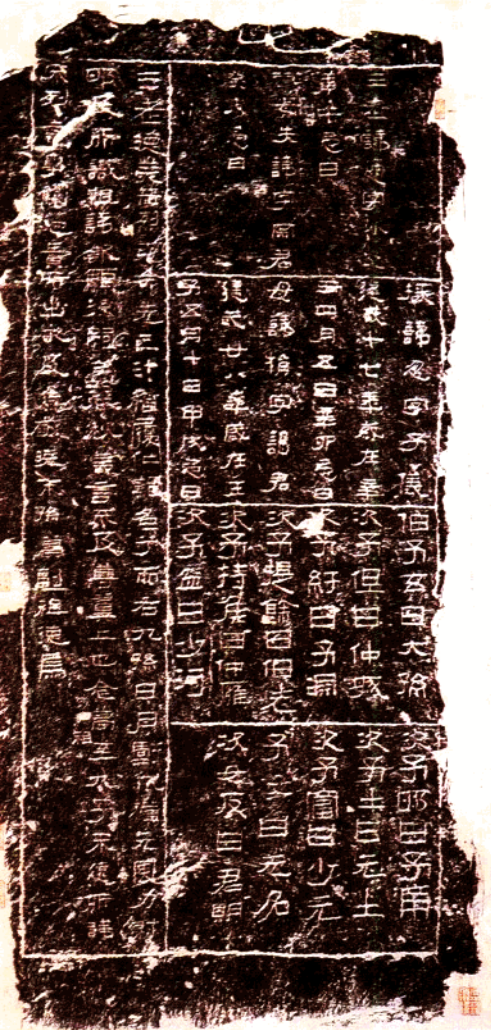 三老諱通字小父
庚午忌日
祖母失諱字宗君
癸未忌日
掾諱忽字子儀
建武十七年歲在辛
丑四月五日辛卯忌日
母諱捐字謁君
建武廿八年歲在壬
子五月十日甲戌忌日
伯子玄曰大孫
次子但曰仲城
次子紆曰子淵
次子提餘曰伯老
次子持侯曰仲雍
次子盆曰少河
次子邯曰子南
次子士曰元士
次子富曰少元
子女曰无名
次女反曰君明
三老德業赫烈克命先己汁稽履仁難名兮而右九孫日月虧代猶元風力射
邈所識祖諱欽顯後嗣蓋春秋義言不及尊翼上也念高祖至九子未遠所諱
不列言事觸忌貴所出嚴及焦敬曉末孫冀副祖德焉